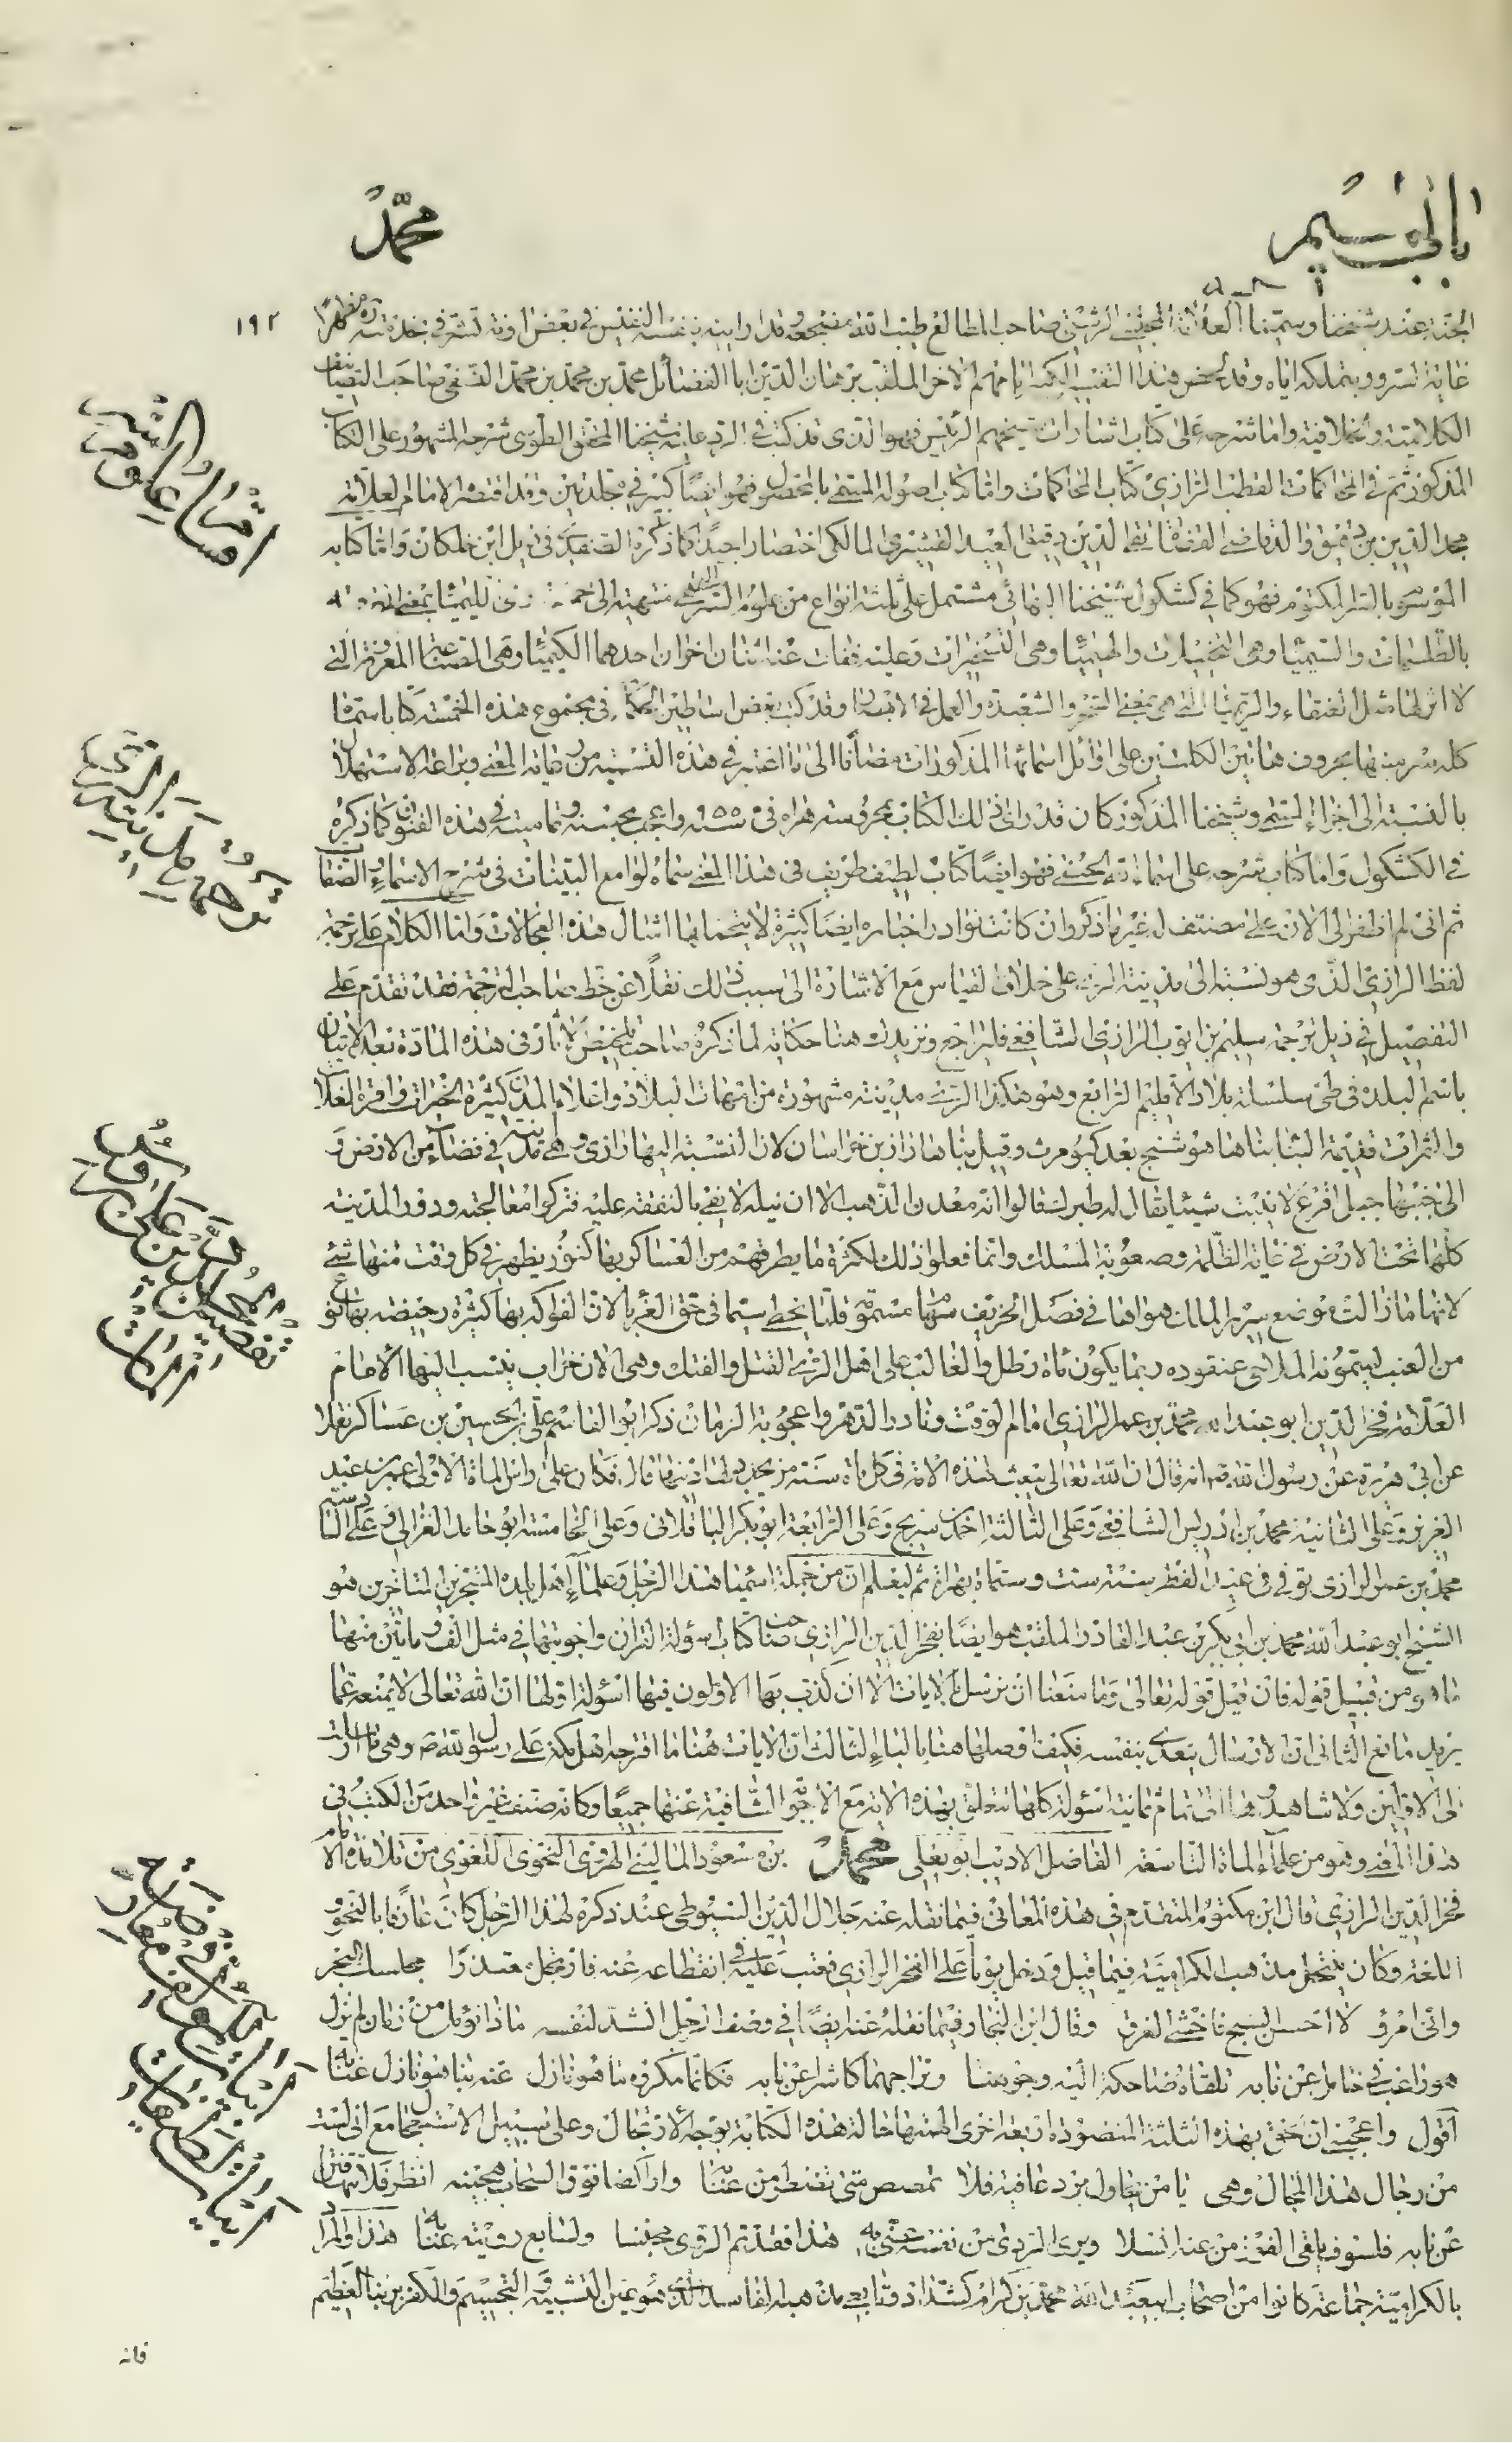 باب الميم
محمد
١٩٢
الجنّة عند شيخنا وسميّنا العلّامة المجلسي صاحب المطالع طيب الله مضجعه وقد رايته بنفسه النفيس في بعض
غاية بتملكه اياه وقد لخص هذا الملقب برهان الدين ابا الفضائل محمد بن محمد بن محمد النسفي صاحب التصانيف
الكلامية والخلافية واما شرحه على كتاب اشارات شيخهم الرئيس فهو الذى قد كتب في الرد عليه شيخنا المحقق الطوسى شرحه المشهور على الكتاب
المذكور ثم في المحاكمات القطب الرازى كتاب المحاكمات واما كتاب اصوله المسمى بالمحصول فهو ايضا كبير في مجلدين وقد اختصره الامام العلامة
مجد الدين بن دقيق والد قاضى القضاة تقى الدين بن دقيق العيد القشيرى المالكى اختصارا جيدا كما ذكره الصفدى في ذيل ابن خلكان واما كتابه
الموسوم بالسر المكتوم فهو كما في كشكول شيخنا البهائى مشتمل على ثلثة انواع من علوم السر منتهية الى خمسة
بالطلسمات والسيميا وهى التخييلات والهيميا وهى التسخيرات وعليه ففات عنه اثنان اخران احدهما الكيميا وهى الصناعة المعروفة التى
لا اثر لها مثل العنقاء والريميا التى هى بمعنى السحر والشعبدة والعمل في الابصار وقد كتب بعض اساطين الحكماء في مجموع هذه الخمسة كتابا سماه
كله سر منبها بحروف هاتين الكلمتين على اوائل اسمائها المذكورات مضافا الى ما اعتبر في هذه التسمية من رعاية المعنى وبراعة الاستهلال
بالنسبة الى اجزاء المسمى وشيخنا المذكور كان قد راى ذلك الكتاب بمحروسة هراة في سنة واعجبه بحسنه وتماميته في هذه الفنون كما ذكره
في الكشكول واما كتاب شرحه على اسماء الله الحسنى فهو ايضا كتاب لطيف طريف في هذا المعنى سماه لوامع البينات في شرح الاسماء والصفات
ثم انى لم اظفر الى الان على مصنف له غير ما ذكر وان كانت نوادر اخباره ايضا كثيرة لا يتحملها امثال هذه العجالات واما الكلام على ترجمة
لفظ الرازى الذى هو نسبة الى مدينة الرى على خلاف القياس مع الاشارة الى سبب ذلك نقلا عن خط صاحب الترجمة فقد تقدم على
التفصيل في ذيل ترجمة سليم بن ايوب الرازى الشافعى فليراجع ونزيدك هنا حكاية لما ذكره صاحب تلخيص الاثار في هذه المادة بعد الاتيان
باسم البلدة في طى سلسلة بلاد الاقليم الرابع وهو هكذا الرى مدينة مشهورة من امهات البلاد واعلام المدن كثيرة الخيرات وافرة الغلات
والثمرات قديمة البنا بناها هوشنج بعد كيومرث وقيل بناها راز بن خراسان لان النسبة اليها رازى وهى مدينة في فضاء من الارض و
الى جنبها جبل اقرع لا ينبت شيئا يقال له طبرك قالوا انه معدن الذهب الا ان نيله لا يفى بالنفقة عليه فتركوا معالجته ودور المدينة
كلها تحت الارض في غاية الظلمة وصعوبة المسلك وانما فعلوا ذلك لكثرة ما يطرقهم من العساكر بها كنوز يظهر في كل وقت منها شئ
لانها ما زالت موضع سرير الملك هواها في فصل الخريف سهام مسمومة قلما تخطى سيما في حق الغرباء لان الفواكه بها كثيرة رخيصة بها نوع
من العنب يسمونه الملاحى عنقوده ربما يكون مأة رطل والغالب على اهل الرى القتل والفتك وهى الان خراب ينسب اليها الامام
العلامة فخر الدين ابو عبد الله محمد بن عمر الرازى امام الوقت ونادر الدهر واعجوبة الزمان ذكر ابو القاسم على بن الحسين بن عساكر نقلا
عن ابى هريرة عن رسول الله ص انه قال ان الله تعالى يبعث لهذه الامة في كل مأة سنة من يجدد لها دينها قال فكان على راس المأة الاولى عمر بن عبد
العزيز وعلى الثانية محمد بن ادريس الشافعى وعلى الثالثة احمد بن سريج وعلى الرابعة ابو بكر الباقلانى وعلى الخامسة ابو حامد الغزالى وعلى السادسة
محمد بن عمر الرازى توفى في عيد الفطر سنة ست وستمأة بهراة ثم ليعلم ان من جملة اسمياء هذا الرجل وعلماء اهل بلده المتبحرين المتاخرين هو
الشيخ ابو عبد الله محمد بن ابى بكر بن عبد القادر الملقب هو ايضا بفخر الدين الرازى صاحب كتاب اسؤلة القران واجوبتها في مثل الف ومائتين منها
ما هو من قبيل قوله فان قيل قوله تعالى وما منعنا ان نرسل بالايات الا ان كذب بها الاولون فيها اسؤلة اولها ان الله تعالى لا يمنعه عما
يريد مانع الثانى ان الارسال يتعدى بنفسه فكيف اوصلها هنا بالباء الثالث ان الايات هنا ما اقترحه اهل مكة على رسول الله ص وهى ما ارسلت
الى الاولين ولا شاهدوها الى تمام ثمانية اسؤلة كلها تتعلق بهذه الاية مع الاجوبة الشافية عنها جميعا وكانه صنف غير واحد من الكتب في
هذا المرام وهو من علماء المأة التاسعة الفاضل الاديب ابو يعلى محمد بن مسعود المالينى الهروى النحوى اللغوى من تلامذة الامام
فخر الدين الرازى قال ابن مكتوم المتقدم في هذه المعانى فيما نقله عنه جلال الدين السيوطى عند ذكره لهذا الرجل كان عارفا بالنحو و
اللغة وكان ينتحل مذهب الكرامية فيما قيل ودخل يوما على الفخر الرازى فعتب عليه في انقطاعه عنه فارتجل معتذرا مجلسك البحر
وانى امرؤ لا احسن السبح فاخشى الغرق وقال ابن النجار فيما نقله عنه ايضا في وصف ارتجل انشد لنفسه ماذا نؤمل من زمان لم يزل
هو راغب في خامل عن نابه تلقاه ضاحكة اليه وجوهنا وتراه جهما كاشرا عن نابه فكانما مكروه ما هو نازل عنه بنا هو نازل عنا به
اقول واعجبنى ان الحق بهذه الثلثة المقصودة اربعة اخرى الهمتها حالة هذه الكتابة بوجه الارتجال وعلى سبيل الاستعجال مع انى لست
من رجال هذا المجال وهى يا من
عن نابه فلسوف هذا
بالكرامية جماعة كانوا من اصحاب ابيعبد الله محمد بن كرام هو عين التشبيه والتجسيم والكفر بربنا العظيم
فانه